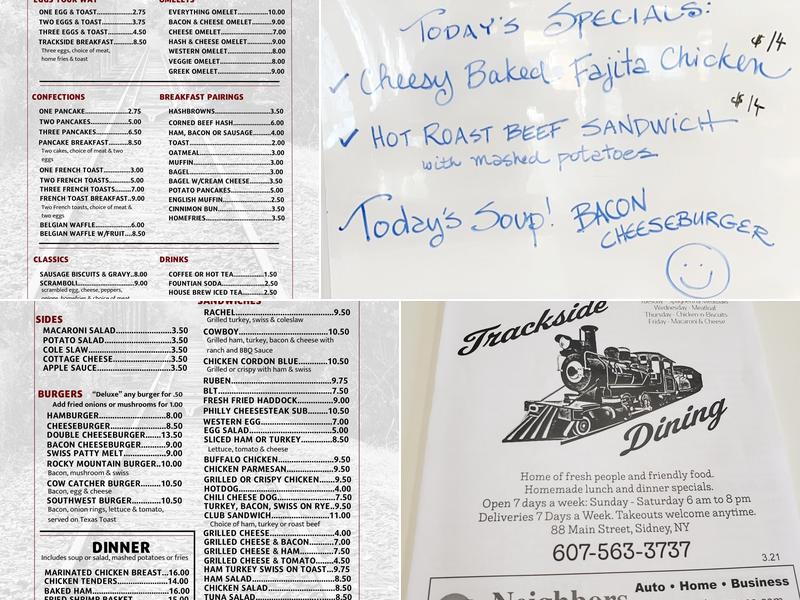 EGGS YOUR WAY
ONE EGG & TOAST...2.75
TWO EGGS & TOAST...3.75
THREE EGGS & TOAST...4.50
TRACKSIDE BREAKFAST...8.50
Three eggs, choice of meat,
home fries & toast
OMELETS
EVERYTHING OMELET...10.00
BACON & CHEESE OMELET...9.00
CHEESE OMELET...7.00
HASH & CHEESE OMELET...9.00
WESTERN OMELET...8.00
VEGGIE OMELET...8.00
GREEK OMELET...9.00
CONFECTIONS
ONE PANCAKE...2.75
TWO PANCAKES...5.00
THREE PANCAKES...6.50
PANCAKE BREAKFAST...8.50
Two cakes, choice of meat & two
eggs
ONE FRENCH TOAST...3.00
TWO FRENCH TOASTS...5.00
THREE FRENCH TOASTS...7.00
FRENCH TOAST BREAKFAST..9.00
Two French toasts, choice of meat &
two eggs
BELGIAN WAFFLE...6.00
BELGIAN WAFFLE W/FRUIT...8.50
BREAKFAST PAIRINGS
HASHBROWNS...3.50
CORNED BEEF HASH...6.00
HAM, BACON OR SAUSAGE...4.00
TOAST...2.00
OATMEAL...3.00
MUFFIN...3.00
BAGEL...3.00
BAGEL W/CREAM CHEESE...3.50
POTATO PANCAKES...5.00
ENGLISH MUFFIN...2.50
CINNIMON BUN...3.50
HOMEFRIES...3.50
CLASSICS
SAUSAGE BISCUITS & GRAVY..8.00
SCRAMBOLI...9.00
scrambled egg, cheese, peppers,
onions, homefries & choice of meat
DRINKS
COFFEE OR HOT TEA...1.50
FOUNTIAN SODA...2.50
HOUSE BREW ICED TEA...2.50
TODAY'S SPECIALS:
✓ Cheesy Baked Fajita Chicken $14
✓ HOT ROAST BEEF SANDWICH $14
with mashed potatoes
Today's Soup! BACON
CHEESEBURGER
SIDES
MACARONI SALAD...3.50
POTATO SALAD...3.50
COLE SLAW...3.50
COTTAGE CHEESE...3.50
APPLE SAUCE...3.50
BURGERS "Deluxe" any burger for .50
Add fried onions or mushrooms for 1.00
HAMBURGER...8.00
CHEESEBURGER...8.50
DOUBLE CHEESEBURGER...13.50
BACON CHEESEBURGER...9.00
SWISS PATTY MELT...9.00
ROCKY MOUNTAIN BURGER..10.00
Bacon, mushroom & swiss
COW CATCHER BURGER...10.50
Bacon, egg & cheese
SOUTHWEST BURGER...10.50
Bacon, onion rings, lettuce & tomato,
served on Texas Toast
DINNER
Includes soup or salad, mashed potatoes or fries
MARINATED CHICKEN BREAST...16.00
CHICKEN TENDERS...14.00
BAKED HAM...16.00
FRIED SHRIMP BASKET...15.00
SANDWICHES
RACHEL...9.50
Grilled turkey, swiss & coleslaw
COWBOY...10.50
Grilled ham, turkey, bacon & cheese with
ranch and BBQ Sauce
CHICKEN CORDON BLUE...10.50
Grilled or crispy with ham & swiss
RUBEN...9.75
BLT...7.50
FRESH FRIED HADDOCK...9.00
PHILLY CHEESESTEAK SUB...10.50
WESTERN EGG...7.00
EGG SALAD...5.00
SLICED HAM OR TURKEY...8.50
Lettuce, tomato & cheese
BUFFALO CHICKEN...9.50
CHICKEN PARMESAN...9.50
GRILLED OR CRISPY CHICKEN...9.50
HOTDOG...4.00
CHILI CHEESE DOG...7.50
TURKEY, BACON, SWISS ON RYE..9.50
CLUB SANDWICH...11.00
Choice of ham, turkey or roast beef
GRILLED CHEESE...4.00
GRILLED CHEESE & BACON...7.00
GRILLED CHEESE & HAM...7.50
GRILLED CHEESE & TOMATO...4.50
HAM TURKEY SWISS ON TOAST...9.75
HAM SALAD...8.50
CHICKEN SALAD...8.50
TUNA SALAD...8.50
Wednesday - Meatloaf
Thursday - Chicken n Biscuits
Friday - Macaroni & Cheese
Trackside
Dining
Home of fresh people and friendly food.
Homemade lunch and dinner specials.
Open 7 days a week: Sunday - Saturday 6 am to 8 pm
Deliveries 7 Days a Week. Takeouts welcome anytime.
88 Main Street, Sidney, NY
607-563-3737
3.21
Auto • Home • Business
Neighbors